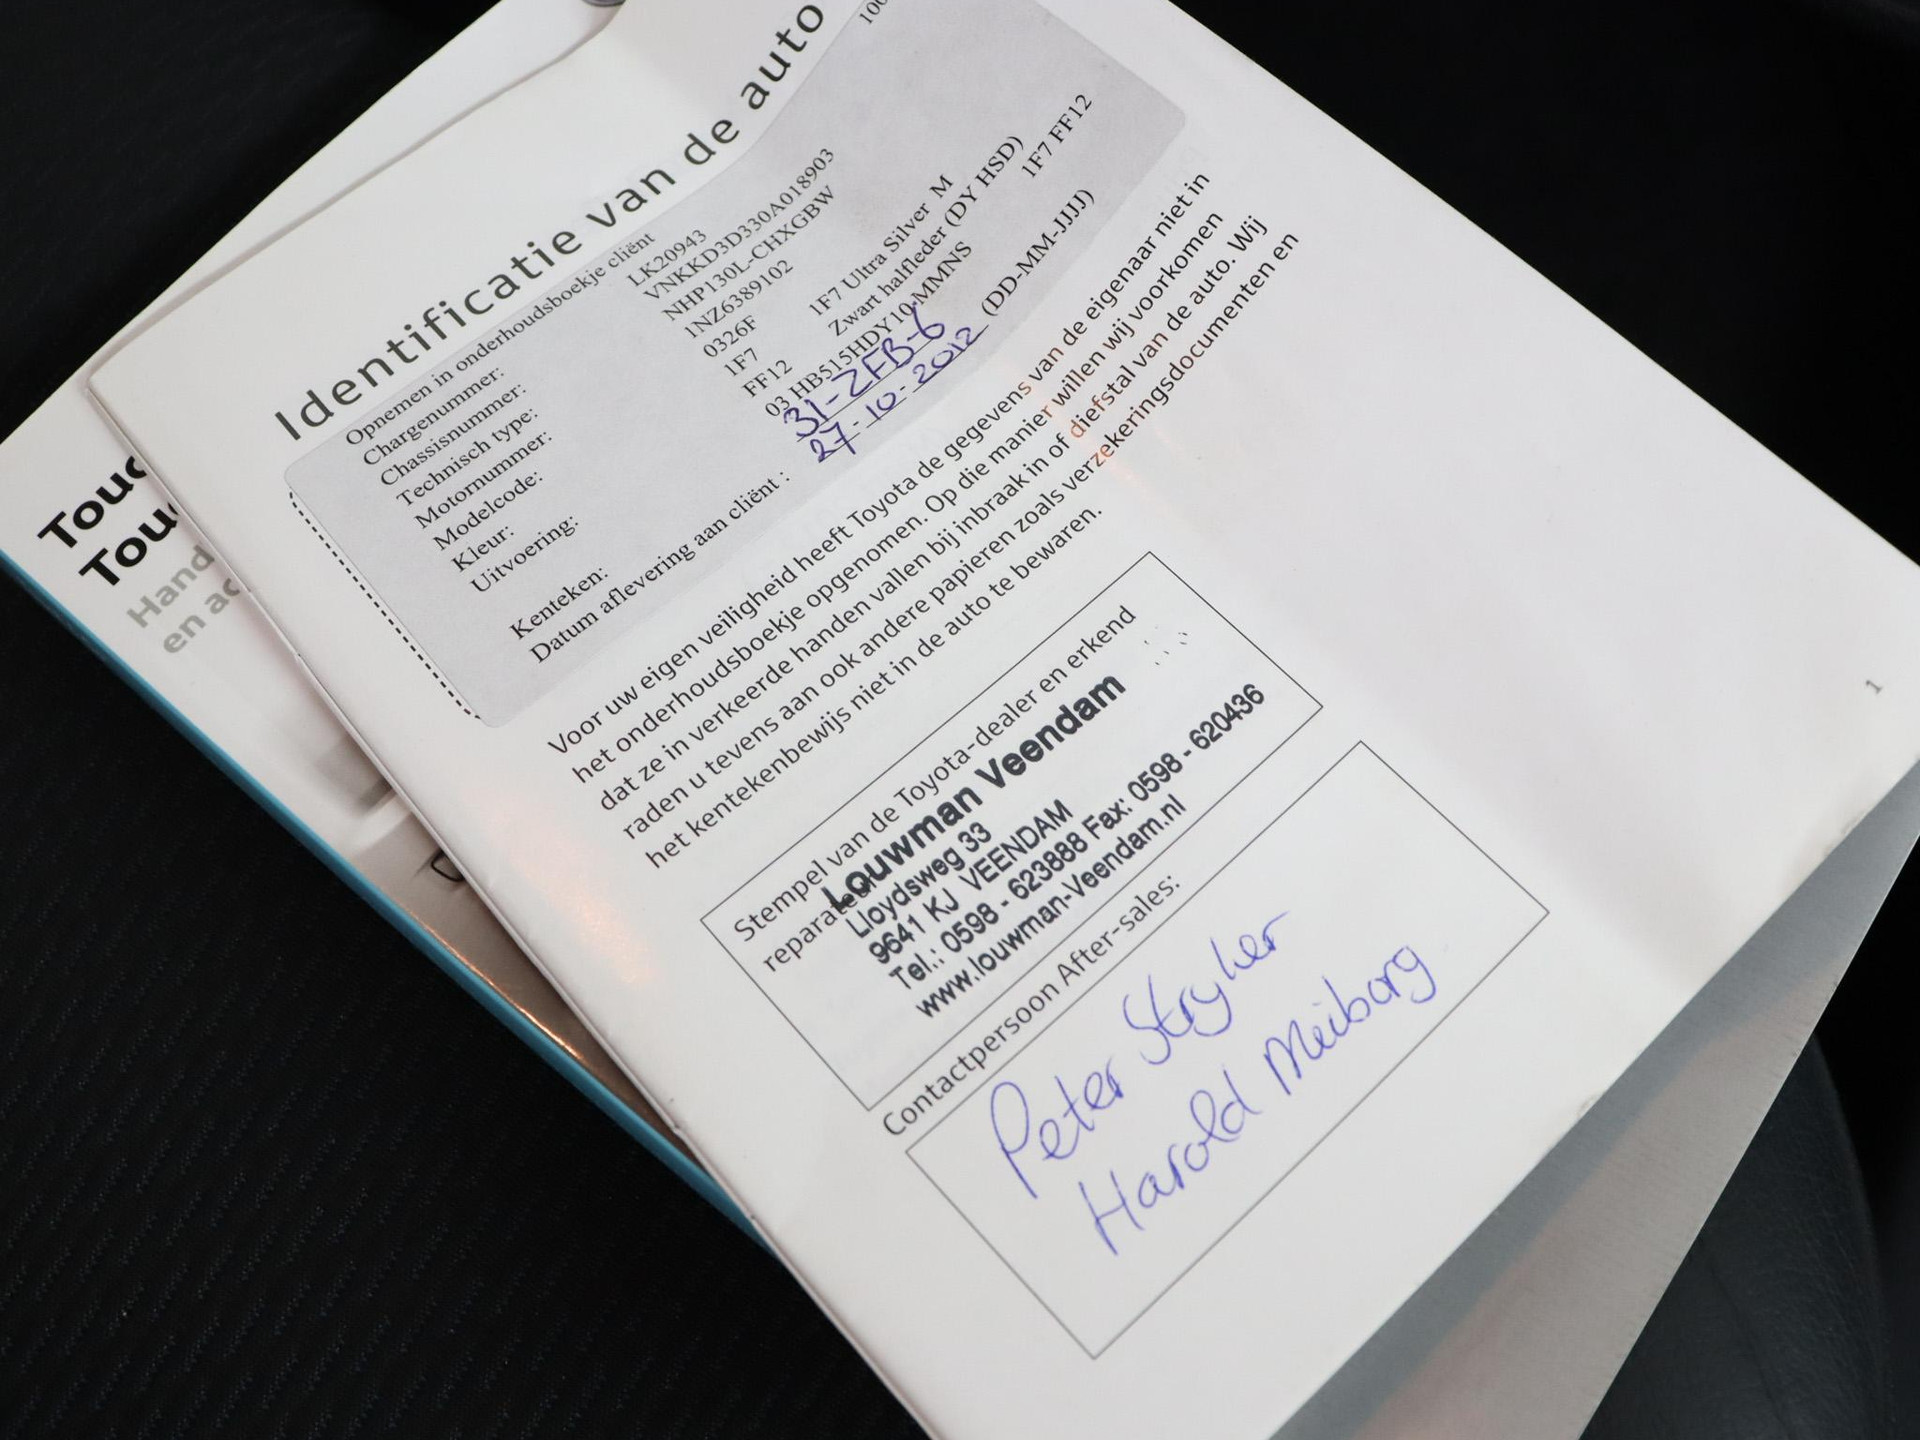 Identificatie van de auto
Opnemen in onderhoudsboekje cliënt
Chargenummer: LK20943
Chassisnummer: VNKKD3D330A018903
Technisch type: NHP130L-CHXGBW
Motornummer: 1NZ6389102
Modelcode: 0326F
Kleur: 1F7 1F7 Ultra Silver M
Uitvoering: FF12 Zwart halfleder (DY HSD) 1F7 FF12
03 HB515HDY10-MMNS
Kenteken: 31-ZFB-6
Datum aflevering aan cliënt : 27-10-2012 (DD-MM-JJJJ)
Voor uw eigen veiligheid heeft Toyota de gegevens van de eigenaar niet in
het onderhoudsboekje opgenomen. Op die manier willen wij voorkomen
dat ze in verkeerde handen vallen bij inbraak in of diefstal van de auto. Wij
raden u tevens aan ook andere papieren zoals verzekeringsdocumenten en
het kentekenbewijs niet in de auto te bewaren.
Stempel van de Toyota-dealer en erkend
Louwman Veendam
Lloydsweg 33
9641 KJ VEENDAM
Tel.: 0598 - 623888 Fax: 0598 - 620436
www.louwman-Veendam.nl
Contactpersoon After-sales:
Peter Stryker
Harold Meiborg
1